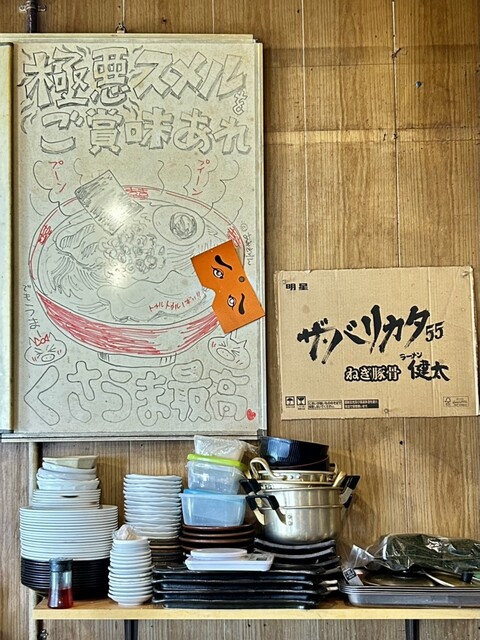 極悪スメルを
ご賞味あれ
プーン
プイーン
でもうまい
くさうま最高
明星
ザ・バリカタ55
ねぎ豚骨
ラーメン
健太